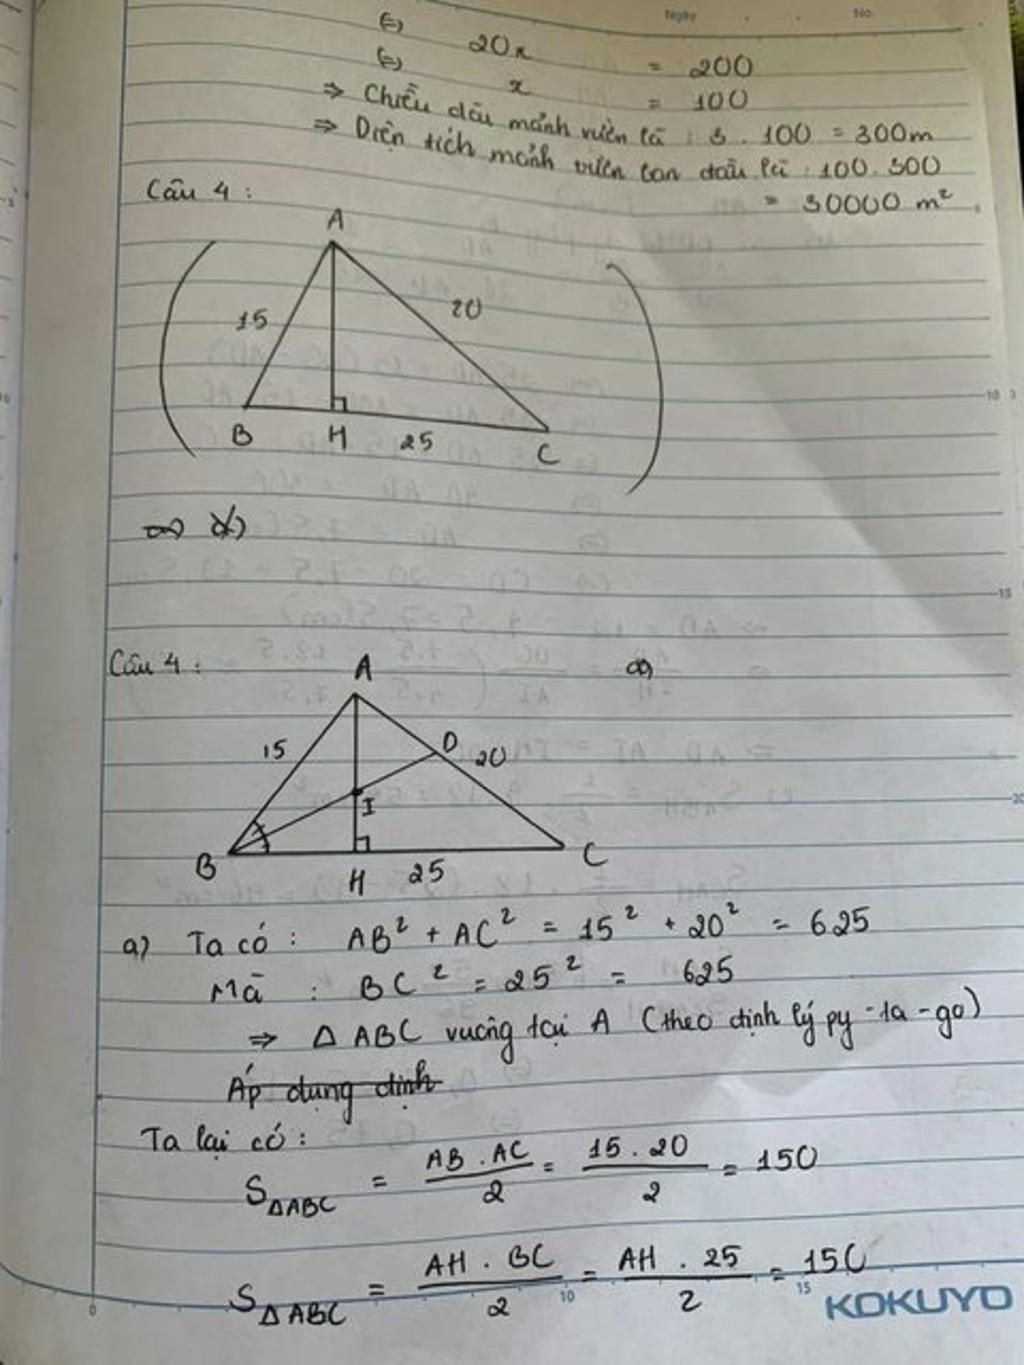 Ngày No.
(=) 20x = 200
(=) x = 100
⇒ Chiều dài mảnh vườn là : 3 . 100 = 300m
⇒ Diện tích mảnh vườn ban đầu là : 100 . 300
= 30000 m²
Câu 4 :
A
15
20
B H 25 C
Câu 4 :
A
a)
15
D
20
I
B
C
H 25
a) Ta có : AB² + AC² = 15² + 20² = 625
Mà : BC² = 25² = 625
⇒ Δ ABC vuông tại A (theo định lý py-ta-go)
Áp dụng định
Ta lại có :
S ΔABC = AB . AC / 2 = 15 . 20 / 2 = 150
S ΔABC = AH . BC / 2 = AH . 25 / 2 = 150
0 10 15
KOKUYO